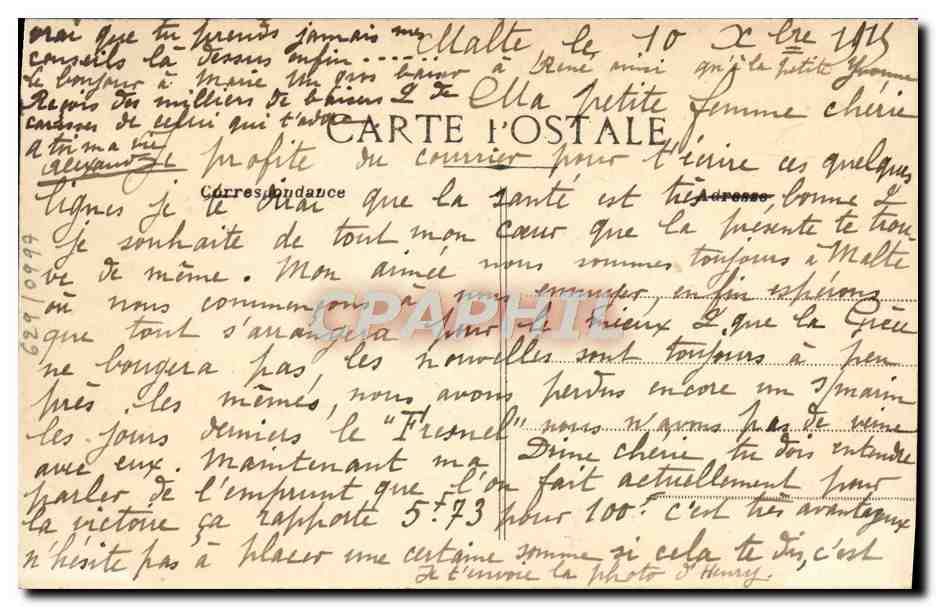 Malte, le 10 Xbre 1915
Ma petite femme chérie
CARTE POSTALE
Je profite du courrier pour t'écrire ces quelques
Correspondance
Adresse
lignes je te dirai que la santé est très bonne &
je souhaite de tout mon cœur que la présente te trou
ve de même. Mon aimée nous sommes toujours à Malte
où nous commençons à nous ennuyer, enfin espérons
que tout s'arrangera pour le mieux & que la Grèce
ne bougera pas, les nouvelles sont toujours à peu
près les mêmes, nous avons perdus encore un s/marin
les jours derniers le "Fresnel" nous n'avons pas de veine
avec eux. Maintenant ma Drine chérie, tu dois entendre
parler de l'emprunt que l'on fait actuellement pour
la victoire ça rapporte 5f.73 pour 100f. c'est très avantageux
n'hésite pas à placer une certaine somme si cela te dis, c'est
vrai que tu prends jamais mes
conseils là dessus enfin.....
le bonjour à Marie Un gros baiser à René ainsi qu'à la petite Yvonne
Reçois des milliers de baisers & de
caresses de celui qui t'adore
A toi ma vie
Alexandre
Je t'envoie la photo d'Henry.
629/0997
CPAPHIL